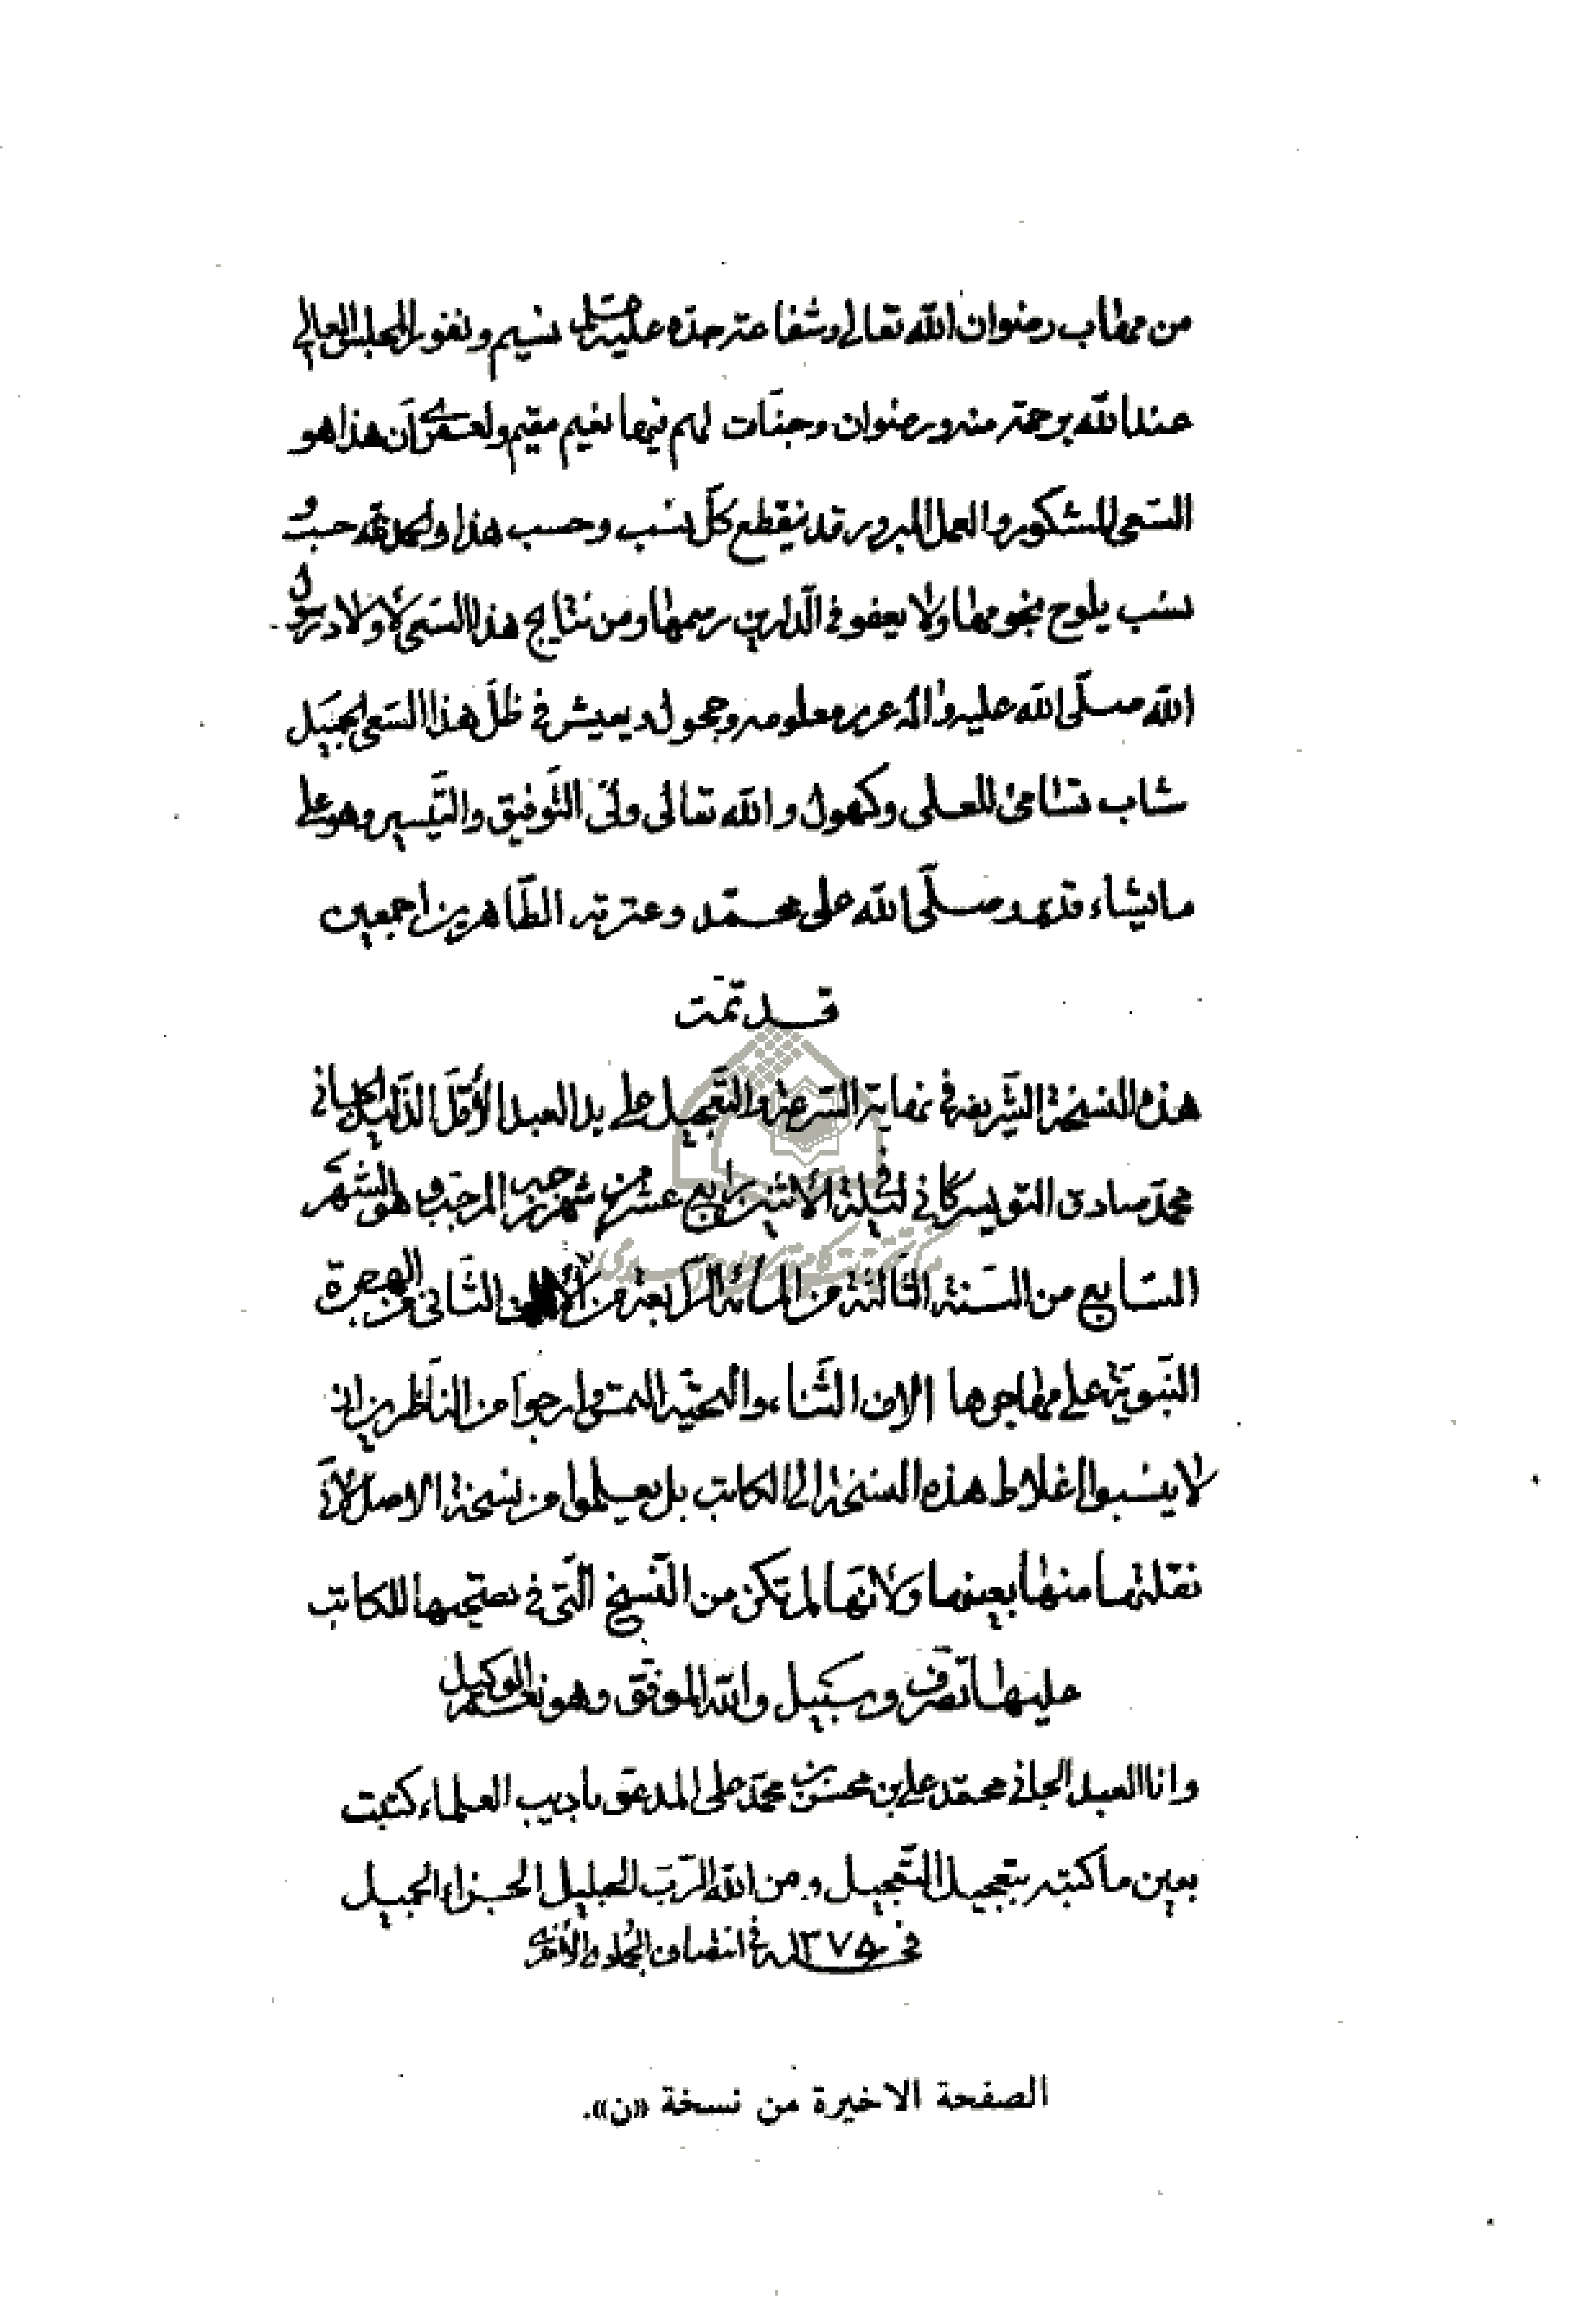 من مهاب رضوان الله تعالى وشفاعة جده عليه نسيم ويفوز المجلس العالي
عند الله برحمة منه ورضوان وجنات لهم فيها نعيم مقيم ولعمري أن هذا هو
السعي المشكور والعمل المبرور قد ينقطع كل نسب وحسب هذا ولعمر الله حسب و
نسب يلوح نجومها ولا يعفو في الدارين رسمها ومن نتايج هذا السعي لأولاد رسول
الله صلى الله عليه وآله غرر معلومه وحجول ويعيش في ظل هذا السعي الجميل
شاب تسامى للعلى وكهول والله تعالى ولي التوفيق والتيسير وهو على
ما يشاء قدير وصلى الله على محمد وعترته الطاهرين اجمعين
قد تمت
هذه النسخة الشريفة في نهاية السرعة والتعجيل على يد العبد الأقل الذليل الجاني
محمد صادق التويسركاني في ليلة الاثنين رابع عشر من شهر رجب المرجب وهو الشهر
السابع من السنة الثالثة من المائة الرابعة من الألف الثاني من الهجرة
النبوية على مهاجرها الاف الثناء والتحية وارجوا من الناظرين ان
لا ينسبوا اغلاط هذه النسخة الى الكاتب بل يعلموا من نسخة الاصل لأني
نقلتها منها بعينها ولأنها لم تكن من النسخ التي في تصحيحها للكاتب
عليها تصرف وسبيل والله الموفق وهو نعم الوكيل
وانا العبد الجاني محمد علي بن محسن بن محمد علي المدعو باديب العلماء كتبت
بعين ما كتبه بتعجيل التعجيل ومن الله الرب الجليل الجزاء الجميل
في سنة ١٣٧٥ في انتصاف الجمادى الأخرة
الصفحة الاخيرة من نسخة «ن».